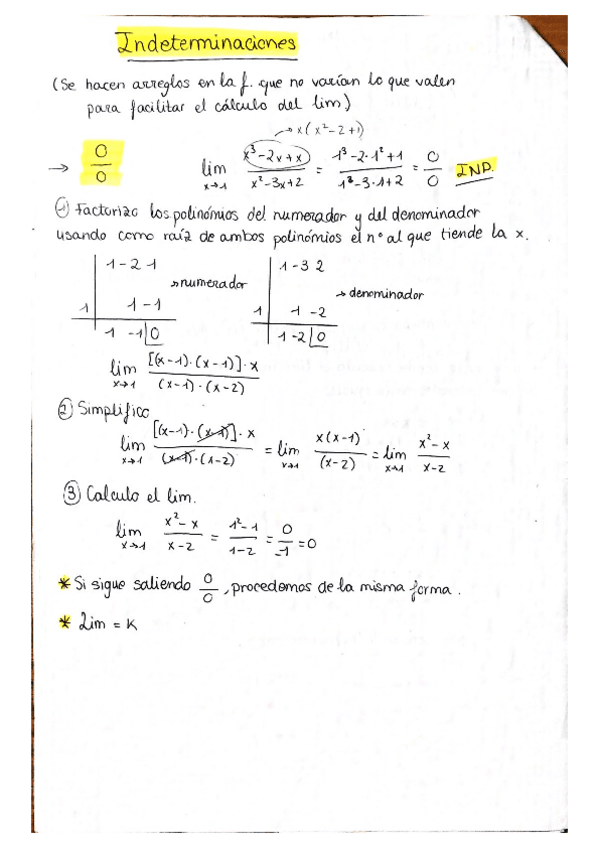 Indeterminaciones
(Se hacen arreglos en la f. que no varían lo que valen
para facilitar el cálculo del lim)
→ x(x²-2+1)
→ 0/0 lim x→1 x³-2x+x / x²-3x+2 = 1³-2·1²+1 / 1²-3·1+2 = 0/0 IND.
① Factorizo los polinómios del numerador y del denominador
usando como raíz de ambos polinómios el nº al que tiende la x.
1 -2 1 → numerador
1 | 1 -1
1 -1 |0
1 -3 2 → denominador
1 | 1 -2
1 -2 |0
lim x→1 [(x-1)·(x-1)]·x / (x-1)·(x-2)
② Simplifico
lim x→1 [(x-1)·(x-1)]·x / (x-1)·(x-2) = lim x→1 x(x-1) / (x-2) = lim x→1 x²-x / x-2
③ Calculo el lim.
lim x→1 x²-x / x-2 = 1²-1 / 1-2 = 0/-1 = 0
* Si sigue saliendo 0/0, procedemos de la misma forma.
* Lim = K